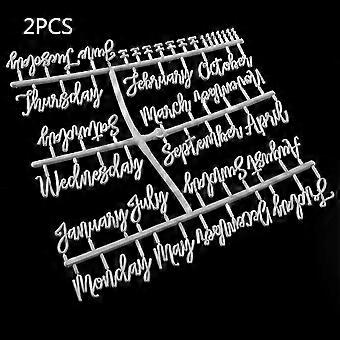 2PCS
Tuesday June
Thursday
February October
March November
Saturday
Wednesday
September April
August Sunday
January July
Monday May December Friday